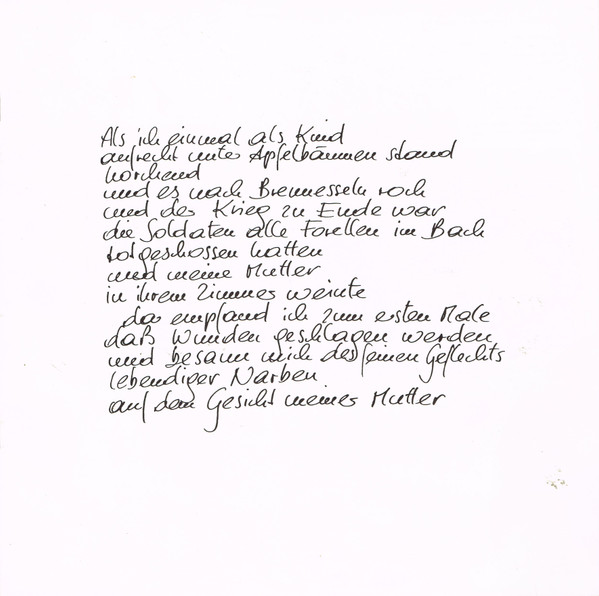 Als ich einmal als Kind
aufrecht unter Apfelbäumen stand
horchend
und es nach Brennesseln roch
und der Krieg zu Ende war
die Soldaten alle Forellen im Bach
totgeschossen hatten
und meine Mutter
in ihrem Zimmer weinte
da empfand ich zum ersten Male
daß Wunden geschlagen werden
und besann mich des feinen Geflechts
lebendiger Narben
auf dem Gesicht meiner Mutter